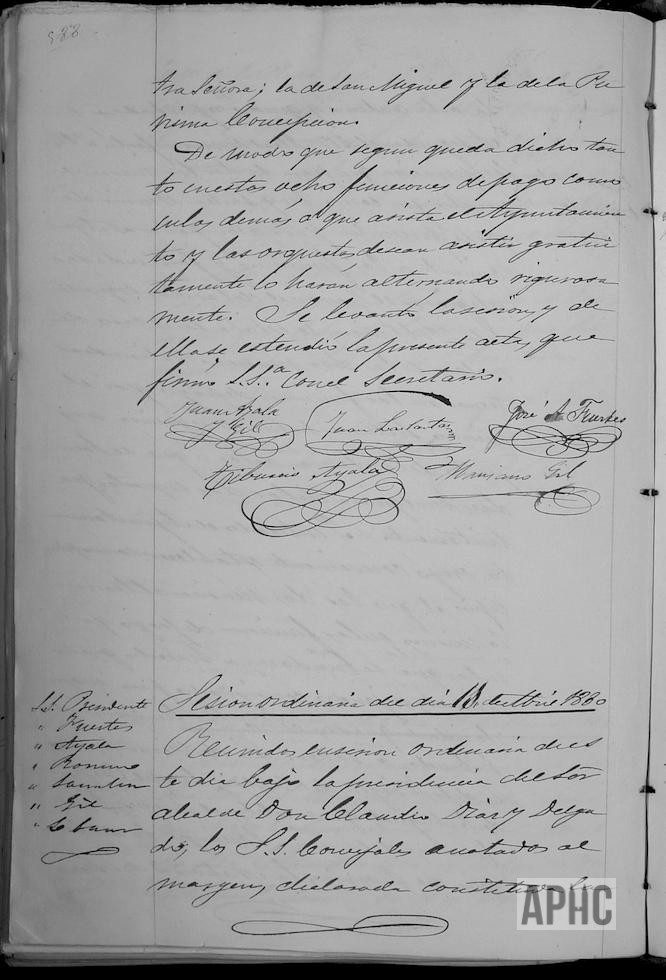 588
tra Señora; la de San Miguel y la de la Pu
risima Concepcion.
De modo que segun queda dicho tan
to en estas ocho funciones de pago como
en las demás a que asista el Ayuntamien
to y las orquestas desean asistir gratui
tamente lo harán alternando rigurosa
mente. Se levantó la sesion, y de
ella se estendió la presente acta, que
firmó S.S.ª con el Secretario.
Juan Ayala
y Gil
Juan
José A. Fuertes
Tiburcio Ayala
Mariano Gil
S.S. Presidente
" Fuertes
" Ayala
" Romero
"
" Gil
"
Sesion ordinaria del dia de 1880
Reunidos en sesion ordinaria de es
te dia bajo la presidencia del Sor
alcalde Don Claudio Diaz y Delga
do, los S.S. Concejales anotados al
margen, declarada constituida la
APHC